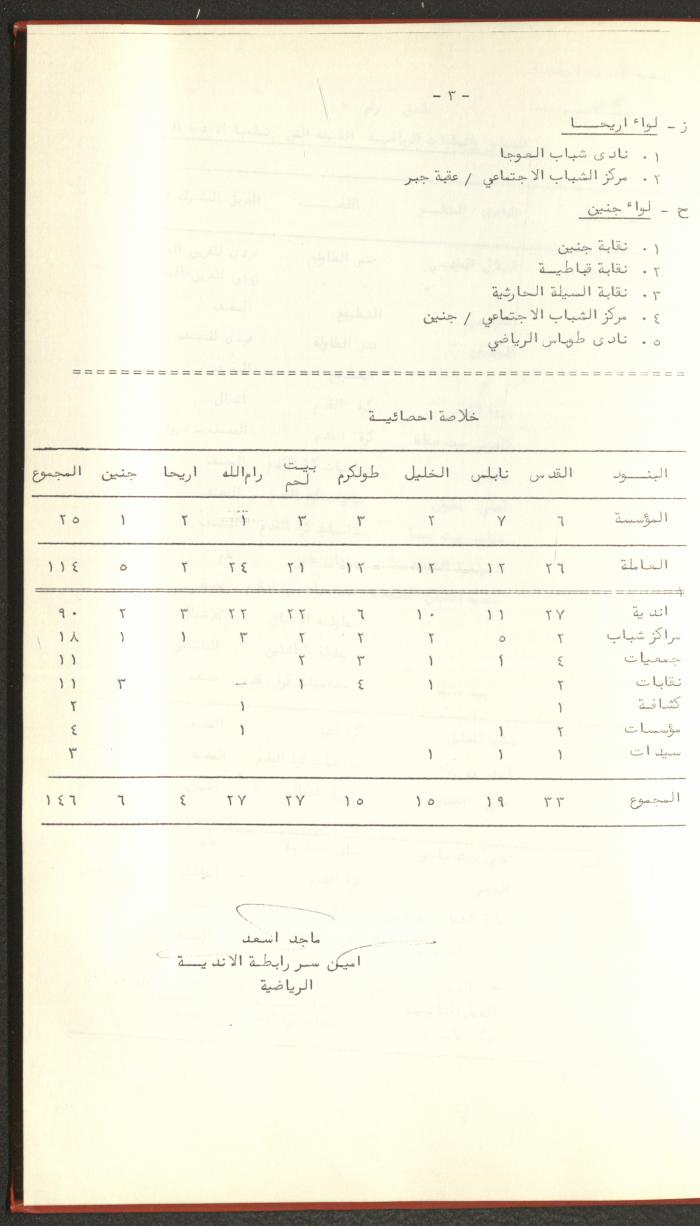 - ٣ -
ز - لواء اريحـــا
١ . نادى شباب العوجا
٢ . مركز الشباب الاجتماعي / عقبة جبر
ح - لواء جنين
١ . نقابة جنين
٢ . نقابة قباطيـة
٣ . نقابة السيلة الحارثية
٤ . مركز الشباب الاجتماعي / جنين
٥ . نادى طوباس الرياضي
خلاصة احصائيـة
البنـــود القدس نابلس الخليل طولكرم بيت لحم رام الله اريحا جنين المجموع
المؤسسة ٦ ٧ ٢ ٣ ٣ ١ ٢ ١ ٢٥
العاملة ٢٦ ١٢ ١٢ ١٢ ٢١ ٢٤ ٢ ٥ ١١٤
اندية ٢٧ ١١ ١٠ ٦ ٢٢ ٢٢ ٣ ٢ ٩٠
مراكز شباب ٢ ٥ ٢ ٢ ٢ ٣ ١ ١ ١٨
جمعيات ٤ ١ ١ ٣ ٢ ١١
نقابات ٢ ١ ٤ ١ - ٣ ١١
كشافـة ١ ١ ٢
مؤسسات ٢ ١ ١ ٤
سيدات ١ ١ ١ ٣
المجموع ٣٣ ١٩ ١٥ ١٥ ٢٧ ٢٧ ٤ ٦ ١٤٦
ماجد اسعد
امين سر رابطة الانديـــة
الرياضية